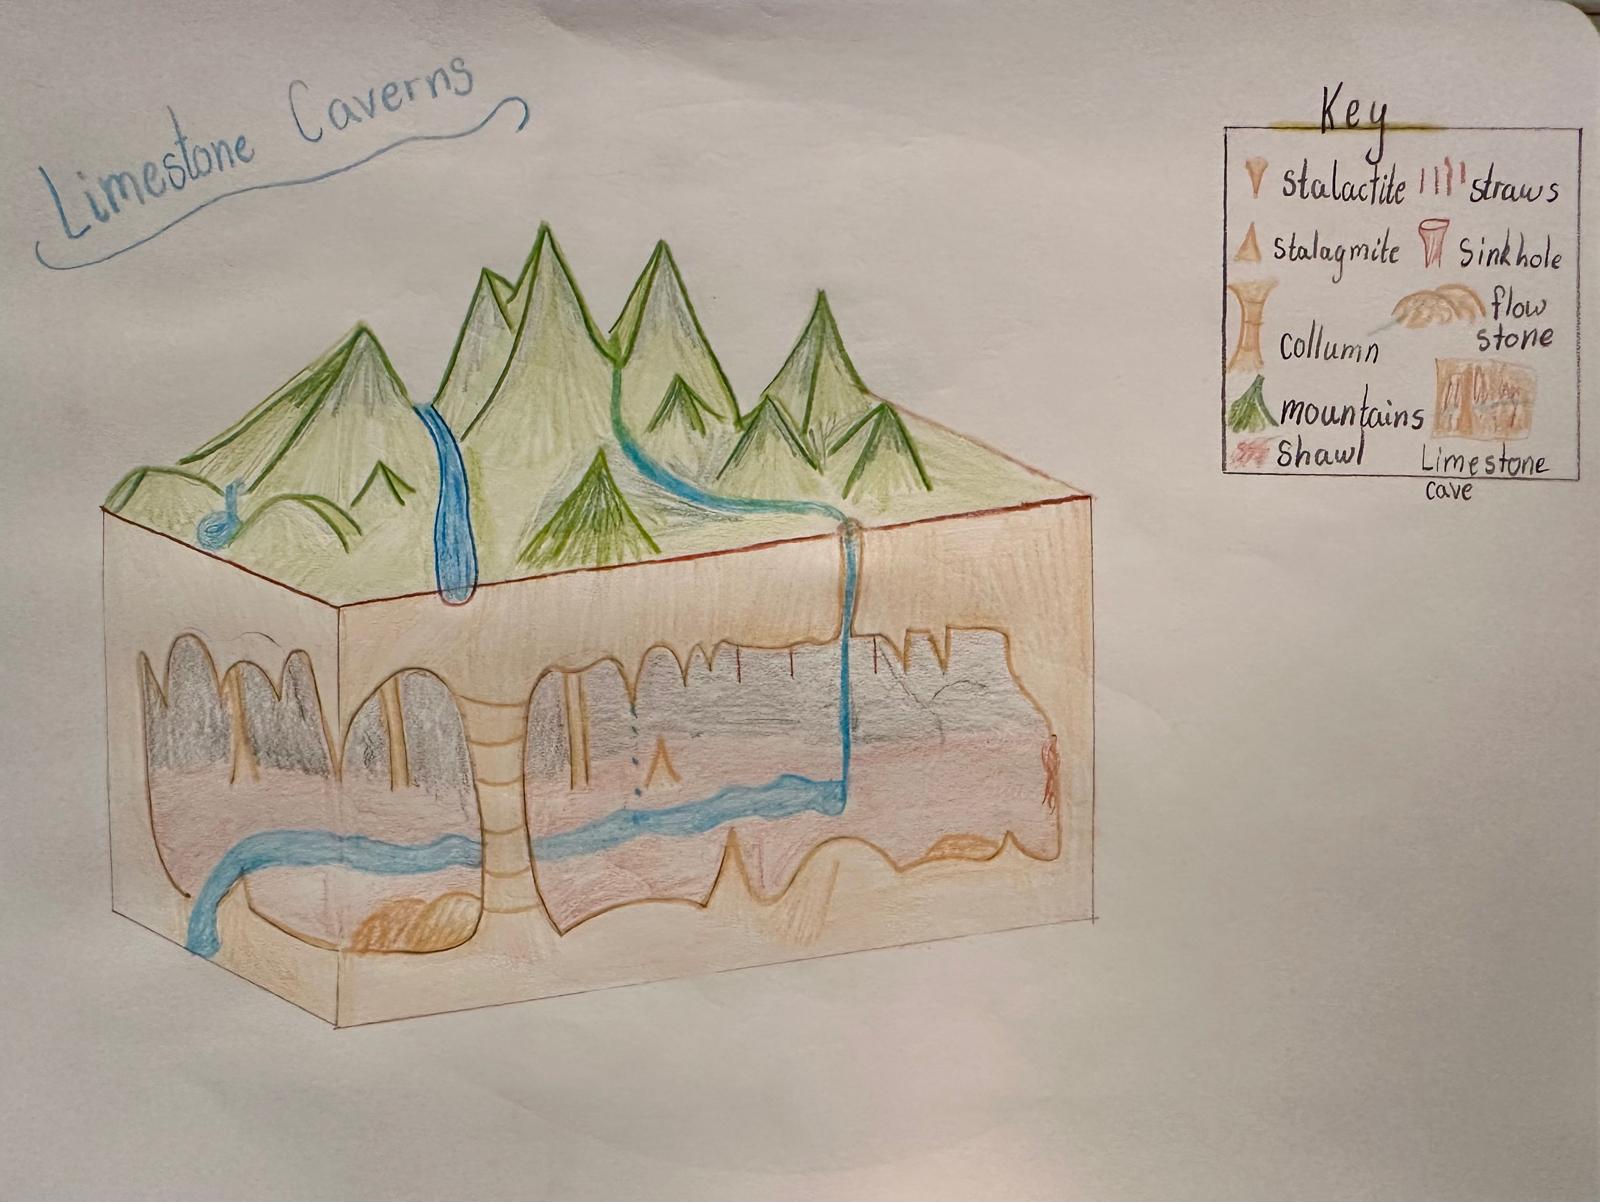 Limestone Caverns
Key
Stalactite
straws
Stalagmite
Sinkhole
flow
stone
Collumn
mountains
Shawl
Limestone
cave